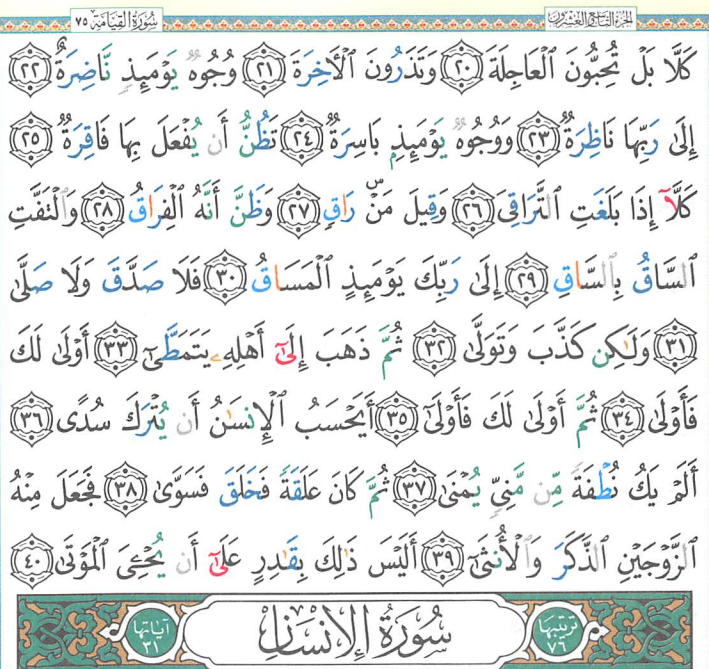 الجزء التاسع والعشرون سُورَةُ القِيَامَةِ ٧٥
كَلَّا بَلْ تُحِبُّونَ ٱلْعَاجِلَةَ ٢٠ وَتَذَرُونَ ٱلْآخِرَةَ ٢١ وُجُوهٌ يَوْمَئِذٍ نَّاضِرَةٌ ٢٢
إِلَىٰ رَبِّهَا نَاظِرَةٌ ٢٣ وَوُجُوهٌ يَوْمَئِذٍۭ بَاسِرَةٌ ٢٤ تَظُنُّ أَن يُفْعَلَ بِهَا فَاقِرَةٌ ٢٥
كَلَّآ إِذَا بَلَغَتِ ٱلتَّرَاقِىَ ٢٦ وَقِيلَ مَنْ ۜ رَاقٍ ٢٧ وَظَنَّ أَنَّهُ ٱلْفِرَاقُ ٢٨ وَٱلْتَفَّتِ
ٱلسَّاقُ بِٱلسَّاقِ ٢٩ إِلَىٰ رَبِّكَ يَوْمَئِذٍ ٱلْمَسَاقُ ٣٠ فَلَا صَدَّقَ وَلَا صَلَّىٰ
٣١ وَلَٰكِن كَذَّبَ وَتَوَلَّىٰ ٣٢ ثُمَّ ذَهَبَ إِلَىٰٓ أَهْلِهِۦ يَتَمَطَّىٰٓ ٣٣ أَوْلَىٰ لَكَ
فَأَوْلَىٰ ٣٤ ثُمَّ أَوْلَىٰ لَكَ فَأَوْلَىٰٓ ٣٥ أَيَحْسَبُ ٱلْإِنسَٰنُ أَن يُتْرَكَ سُدًى ٣٦
أَلَمْ يَكُ نُطْفَةً مِّن مَّنِىٍّ يُمْنَىٰ ٣٧ ثُمَّ كَانَ عَلَقَةً فَخَلَقَ فَسَوَّىٰ ٣٨ فَجَعَلَ مِنْهُ
ٱلزَّوْجَيْنِ ٱلذَّكَرَ وَٱلْأُنثَىٰٓ ٣٩ أَلَيْسَ ذَٰلِكَ بِقَٰدِرٍ عَلَىٰٓ أَن يُحْۦِىَ ٱلْمَوْتَىٰ ٤٠
ترتيبها ٧٦ سُورَةُ الإِنْسَانِ آياتها ٣١